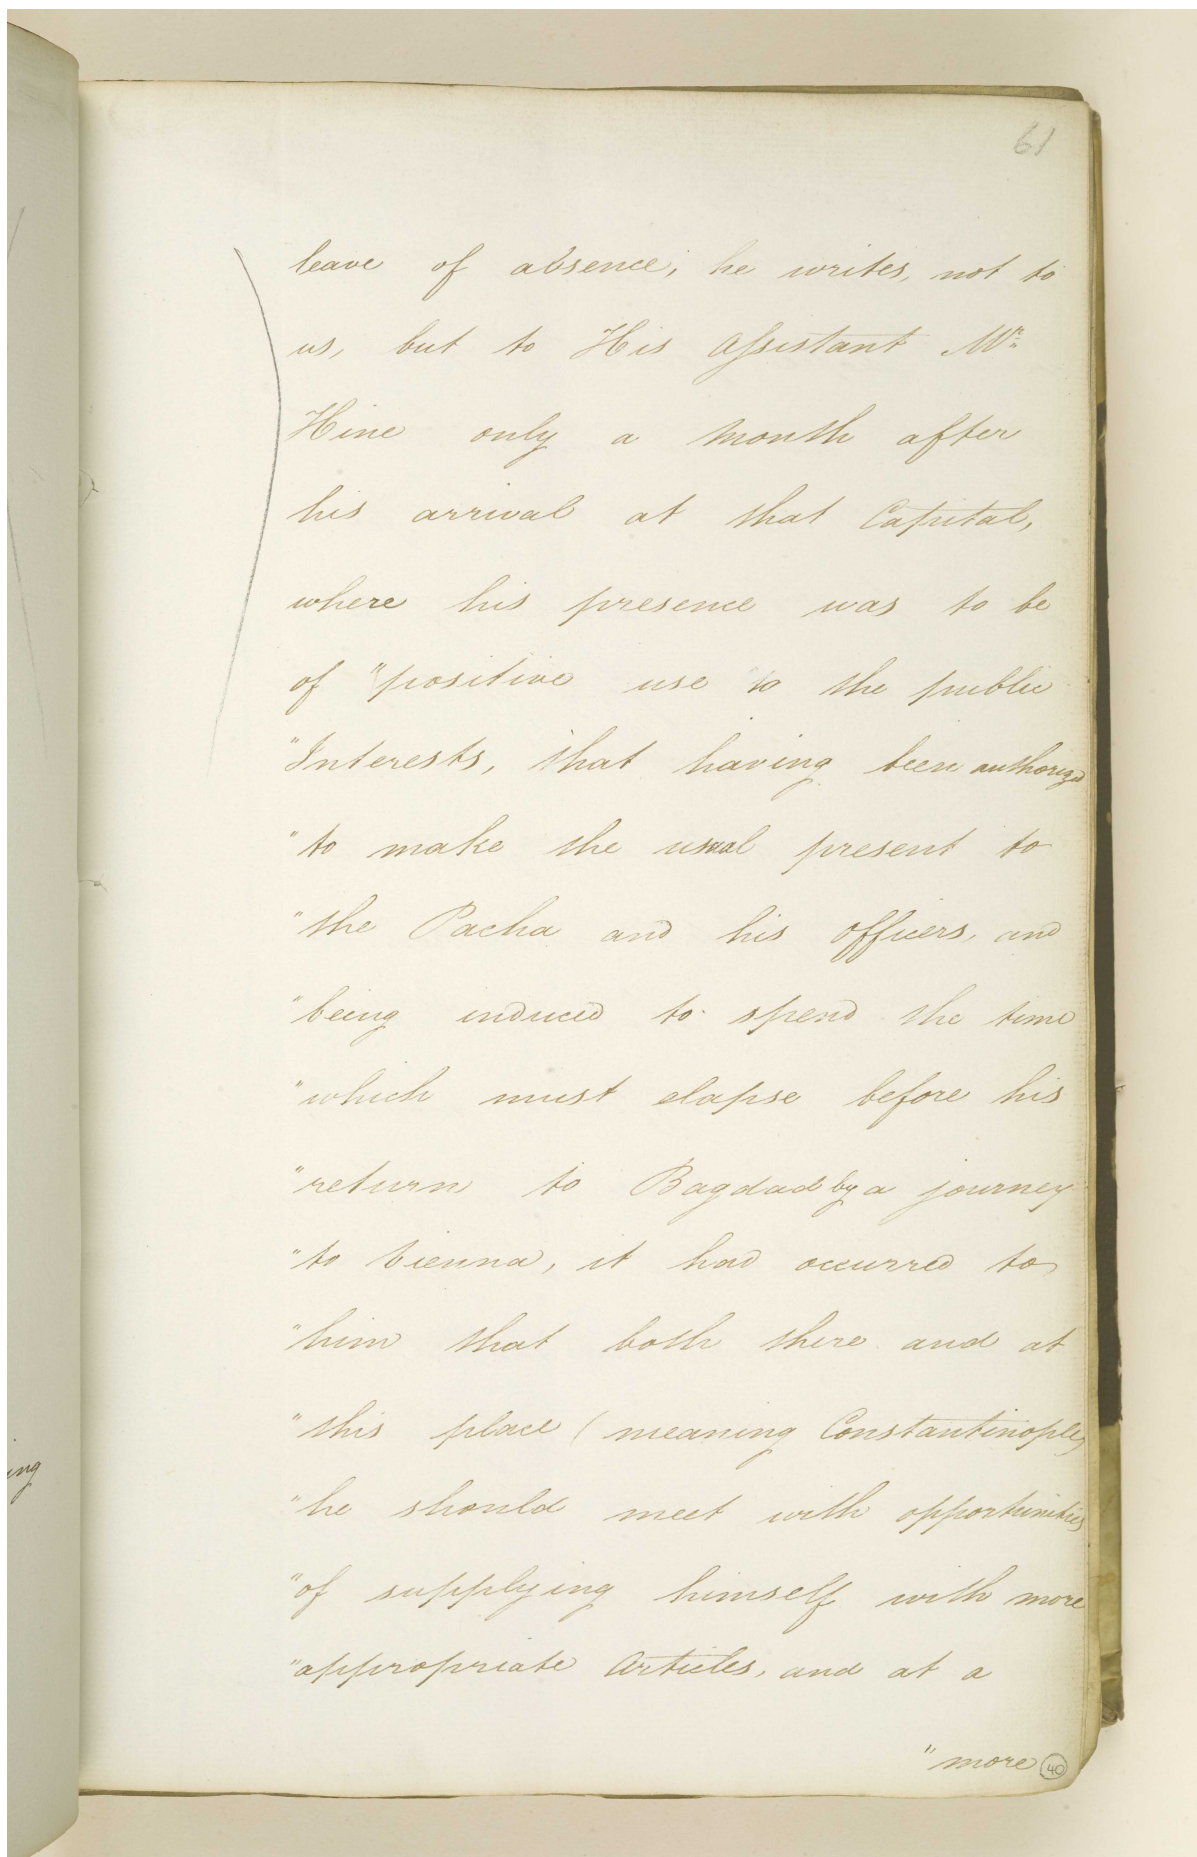 61
leave of absence; he writes, not to
us, but to His Assistant Mr.
Hine only a Month after
his arrival at that Capital,
where his presence was to be
of "positive use to the public
"Interests, that having been authorized
"to make the usual present to
"the Pacha and his officers, and
"being induced to spend the time
"which must elapse before his
"return to Bagdad by a journey
"to Vienna, it had occurred to
"him that both there and at
"this place (meaning Constantinople)
"he should meet with opportunities
"of supplying himself with more
"appropriate Articles, and at a
"more
40
ing